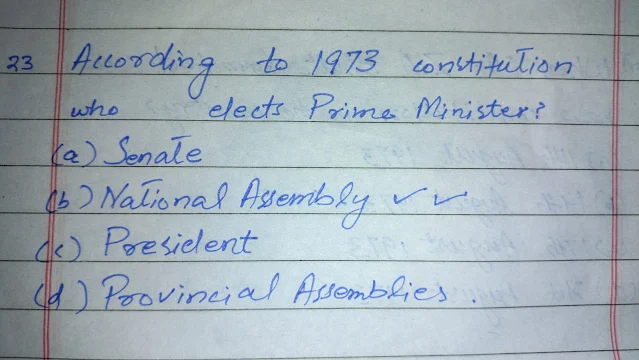 23 According to 1973 constitution
who elects Prime Minister?
(a) Senate
(b) National Assembly ✓ ✓
(c) President
(d) Provincial Assemblies.